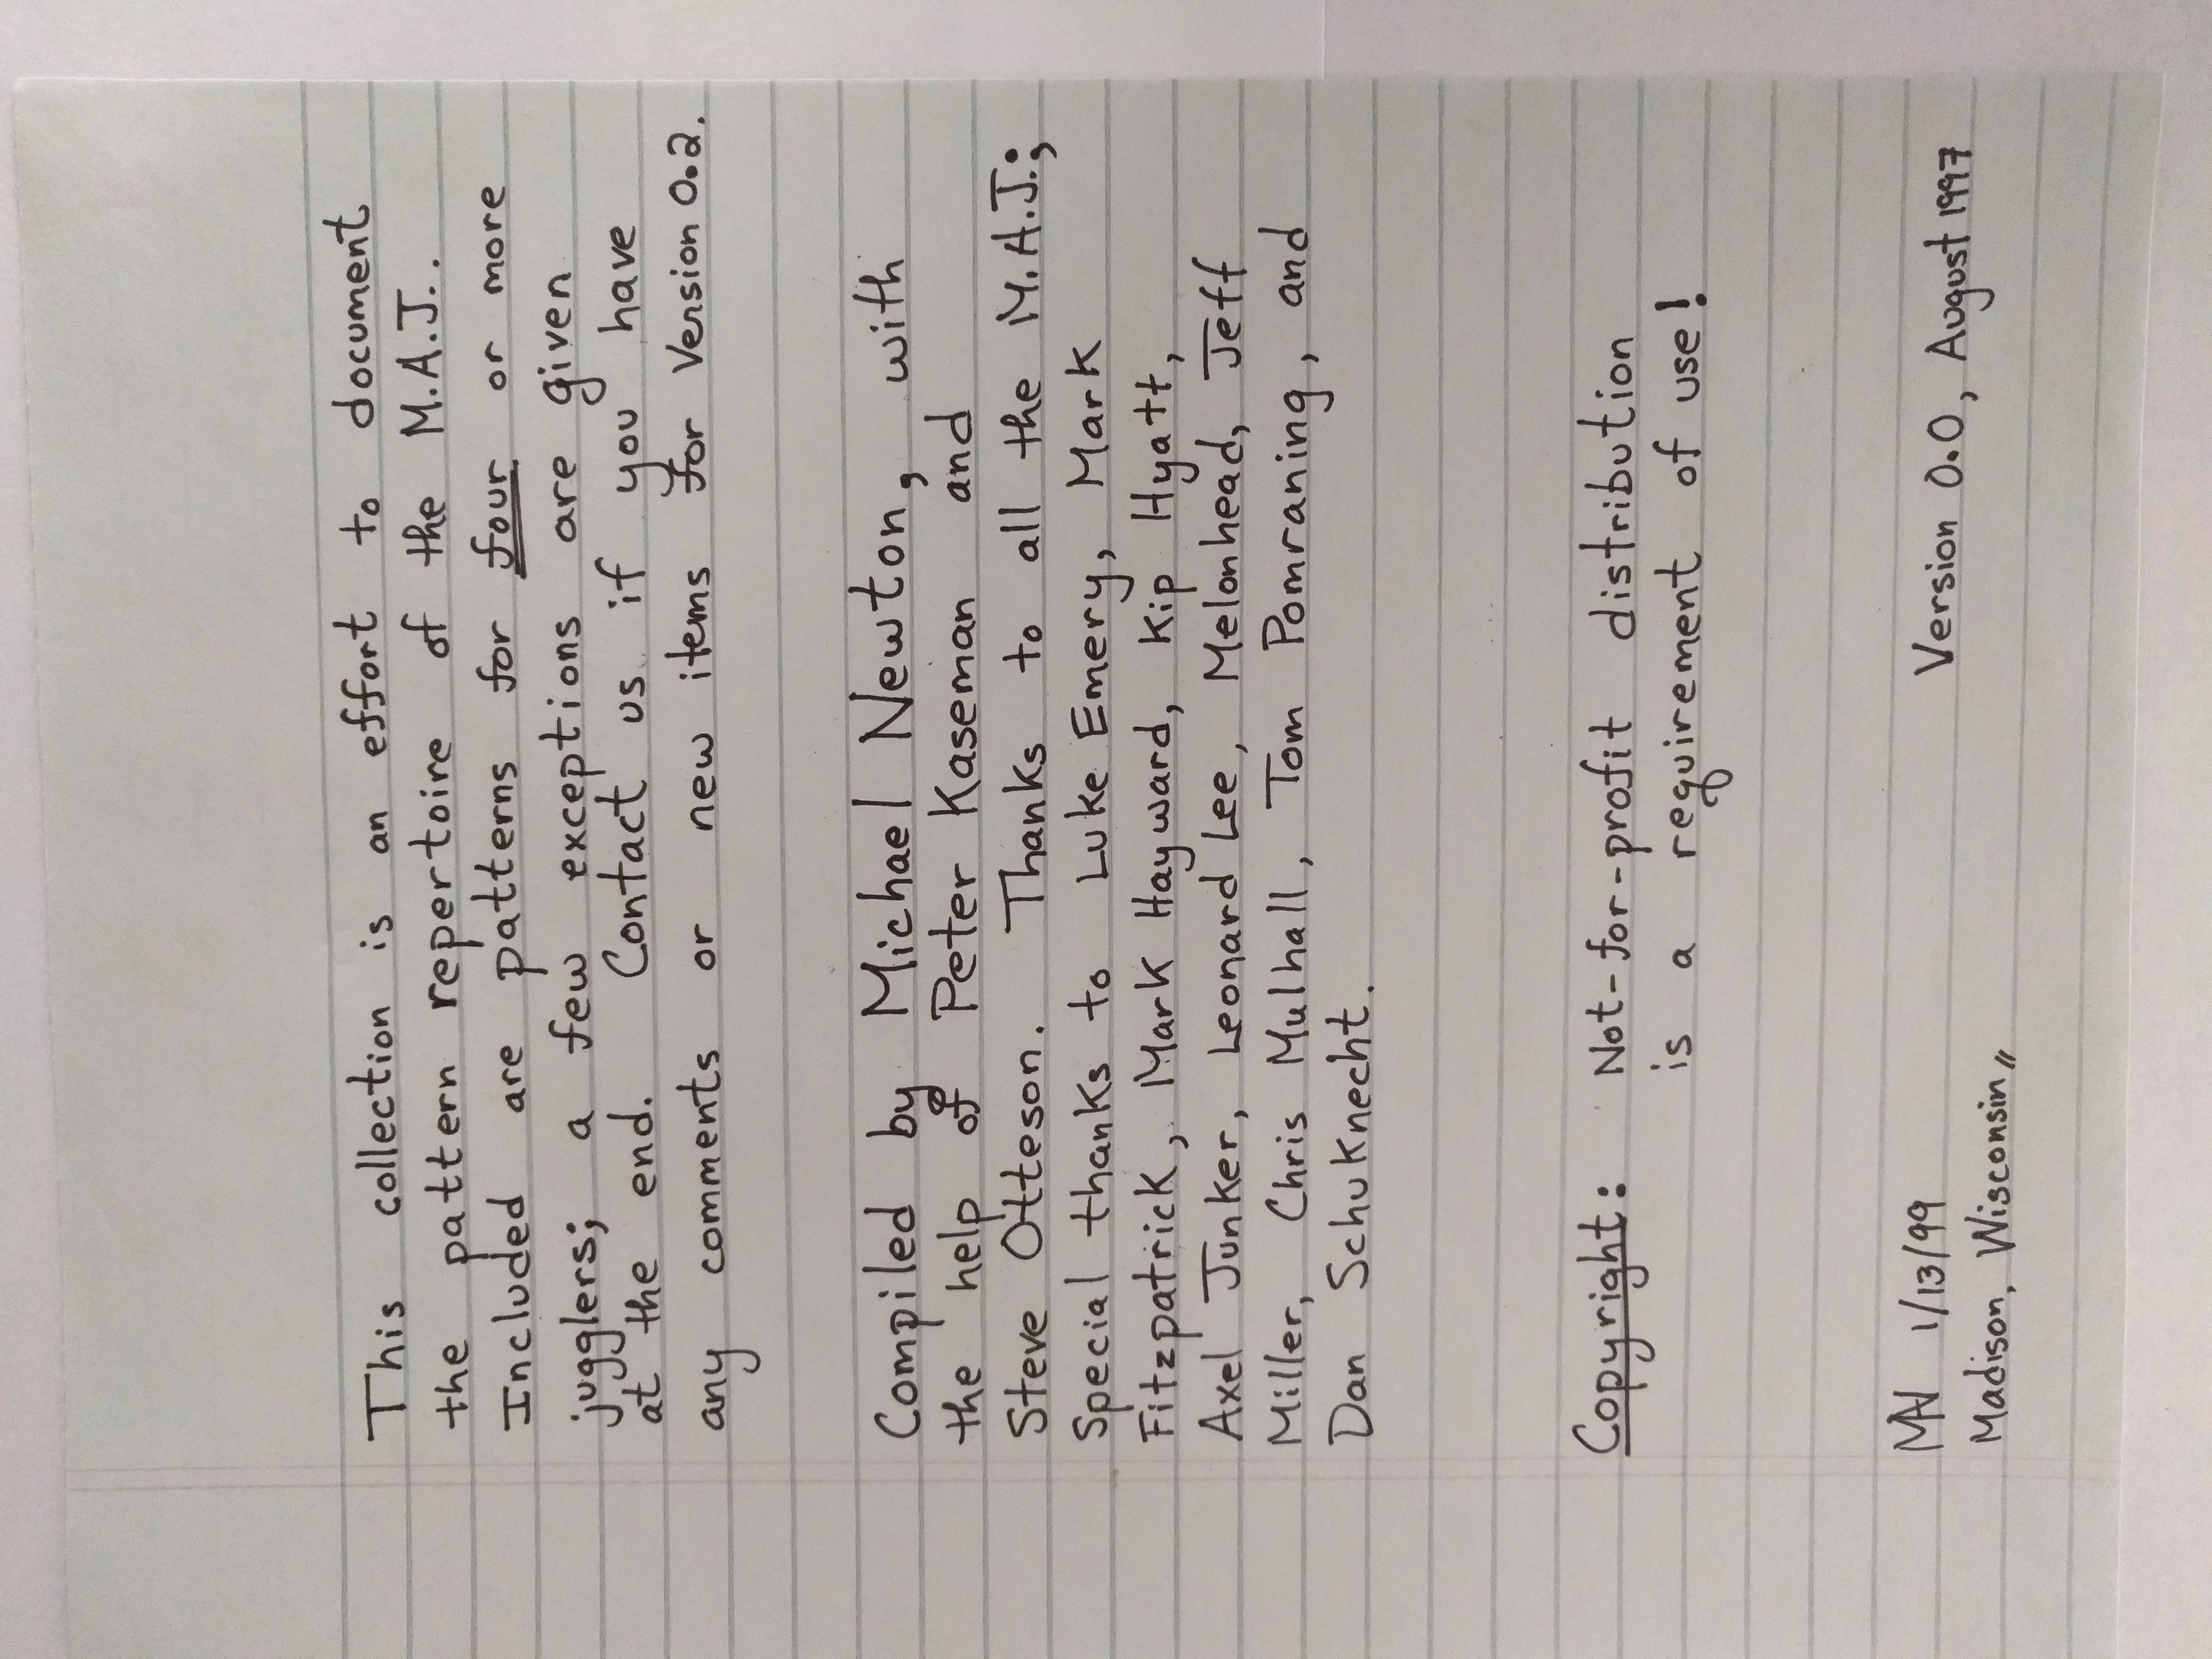 This collection is an effort to document
the pattern repertoire of the M.A.J..
Included are patterns for four or more
jugglers; a few exceptions are given
at the end. Contact us if you have
any comments or new items for Version 0.2.
Compiled by Michael Newton, with
the help of Peter Kaseman and
Steve Otteson. Thanks to all the M.A.J.;
Special thanks to Luke Emery, Mark
Fitzpatrick, Mark Hayward, Kip Hyatt,
Axel Junker, Leonard Lee, Melonhead, Jeff
Miller, Chris Mulhall, Tom Pomraning, and
Dan Schuknecht.
Copyright: Not-for-profit distribution
is a requirement of use!
MN 1/13/99 Version 0.0, August 1997
Madison, Wisconsin,,